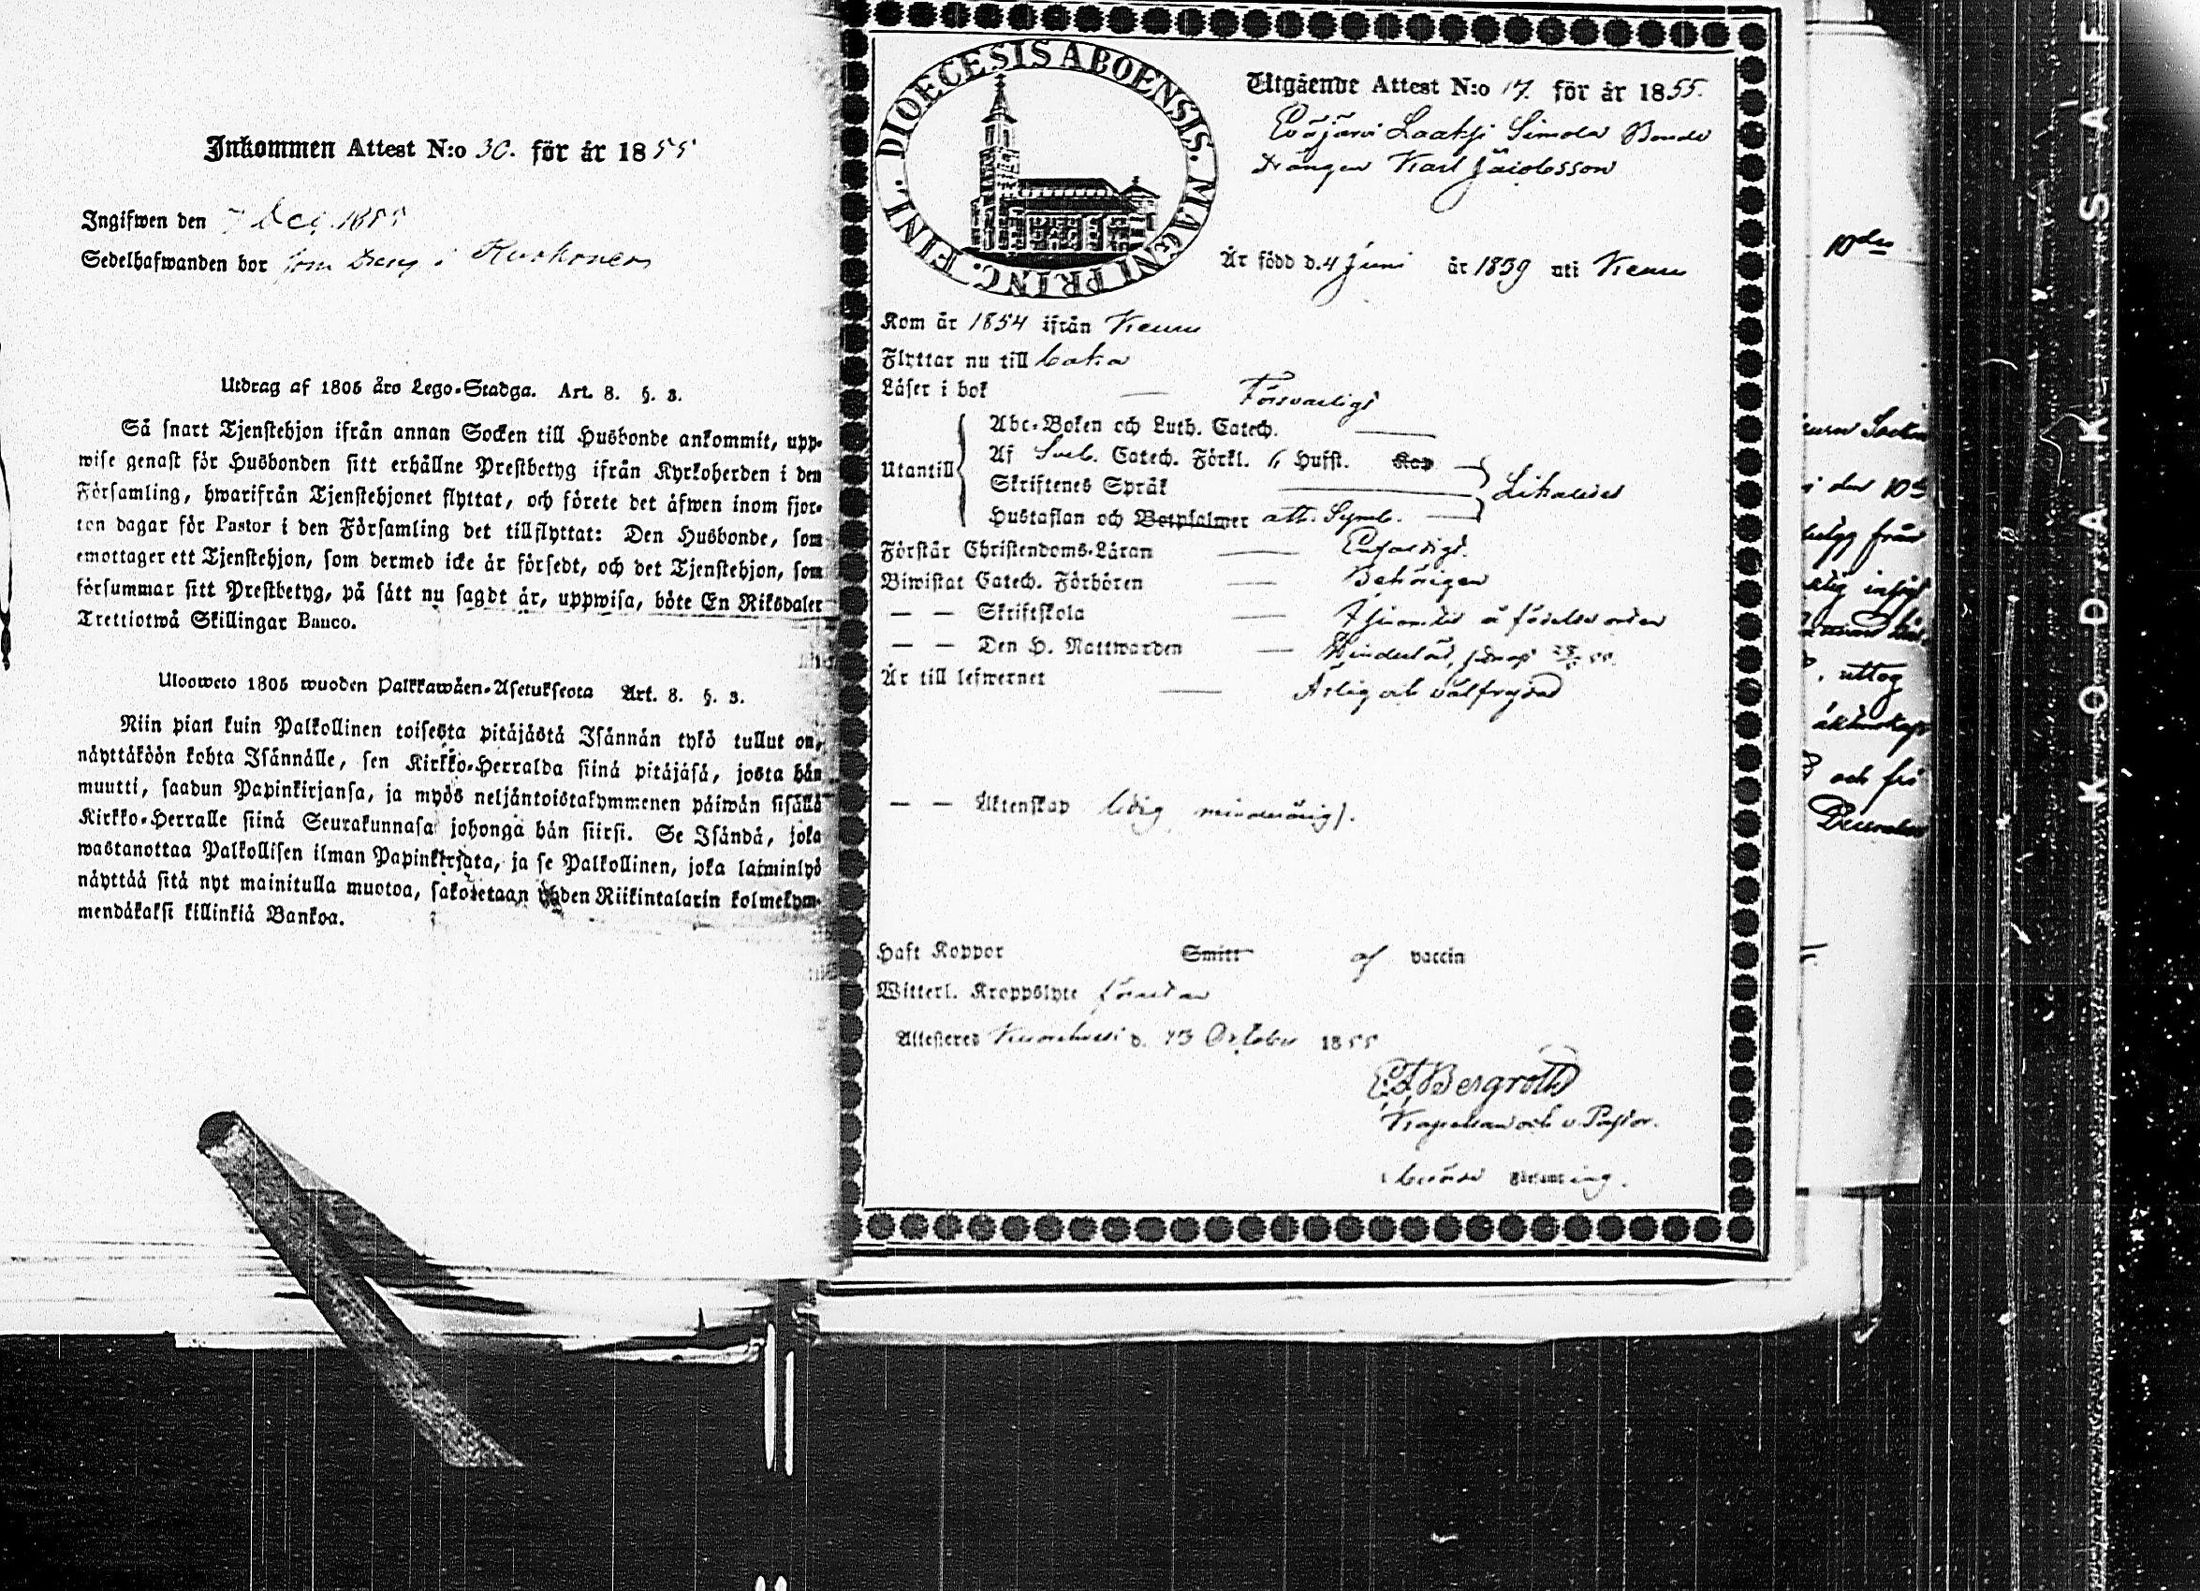 Inkommen Attest N:o 30. för år 1855
Ingifwen den 7 Dec. 1855
Sedelhafwanden bor som Dreng i
Utdrag af 1805 års Lego-Stadga. Art. 8. §. 3.
Så snart Tjenstehjon ifrån annan Socken till Husbonde ankommit, upp-
wise genast för Husbonden sitt erhållne Prestbetyg ifrån Kyrkoherden i den
Församling, hwarifrån Tjenstehjonet flyttat, och förete det äfwen inom fjor-
ton dagar för Pastor i den Församling det tillflyttat: Den Husbonde, som
emottager ett Tjenstehjon, som dermed icke är försedt, och det Tjenstehjon, som
försummar sitt Prestbetyg, på sätt nu sagdt är, uppwisa, böte En Riksdaler
Trettiotwå Skillingar Banco.
Ulosweto 1805 wuoden Palkkawäen-Asetuksesta Art. 8. §. 3.
Niin pian kuin Palkollinen toisesta pitäjästä Isännän tykö tullut on,
näyttäköön kohta Isännälle, sen Kirkko-Herralda siinä pitäjäsä, josta hän
muutti, saadun Papinkirjansa, ja myös neljäntoistakymmenen päiwän sisällä
Kirkko-Herralle siinä Seurakunnasa johonga hän siirsi. Se Isändä, joka
wastanottaa Palkollisen ilman Papinkirjata, ja se Palkollinen, joka laiminlyö
näyttää sitä nyt mainitulla muotoa, sakoitetaan yhden Riikintalarin kolmekym-
mendäkaksi killinkiä Bankoa.
DIOECESIS ABOENSIS. MAGNI PRINC. FINL.
Utgående Attest N:o 17. för år 1855.
Eväjärvi Laaksi Simola Bonde
Drängen Karl Jacobsson
Är född d. 4 Juni år 1839 uti Keuru
Kom år 1854 ifrån Keuru
Flyttar nu till
Läser i bok — Försvarligt
Utantill
Abc-Boken och Luth. Catech. —
Af Sveb. Catech. Förkl. 6 Hufst. Kap —
Skriftenes Språk — Likaledes
Hustaflan och Botpsalmer ath. Symb. —
Förstår Christendoms-Läran — Enfaldigt.
Biwistat Catech. Förhören — Behörigen
— — Skriftskola — å födelse orten
— — Den H. Nattwarden —
Är till lefwernet — Ärlig och välfrejdad
— — Äktenskap ledig minderårig).
Haft Koppor Smitt af vaccin
Witterl. Kroppslyte
Attesteres d. 13 October 1855
Bergroth
Kapellan och v. Pastor.
i Församling.
10de
den 10
uttog
äktenskap
och fri
December
KODAK SAFE